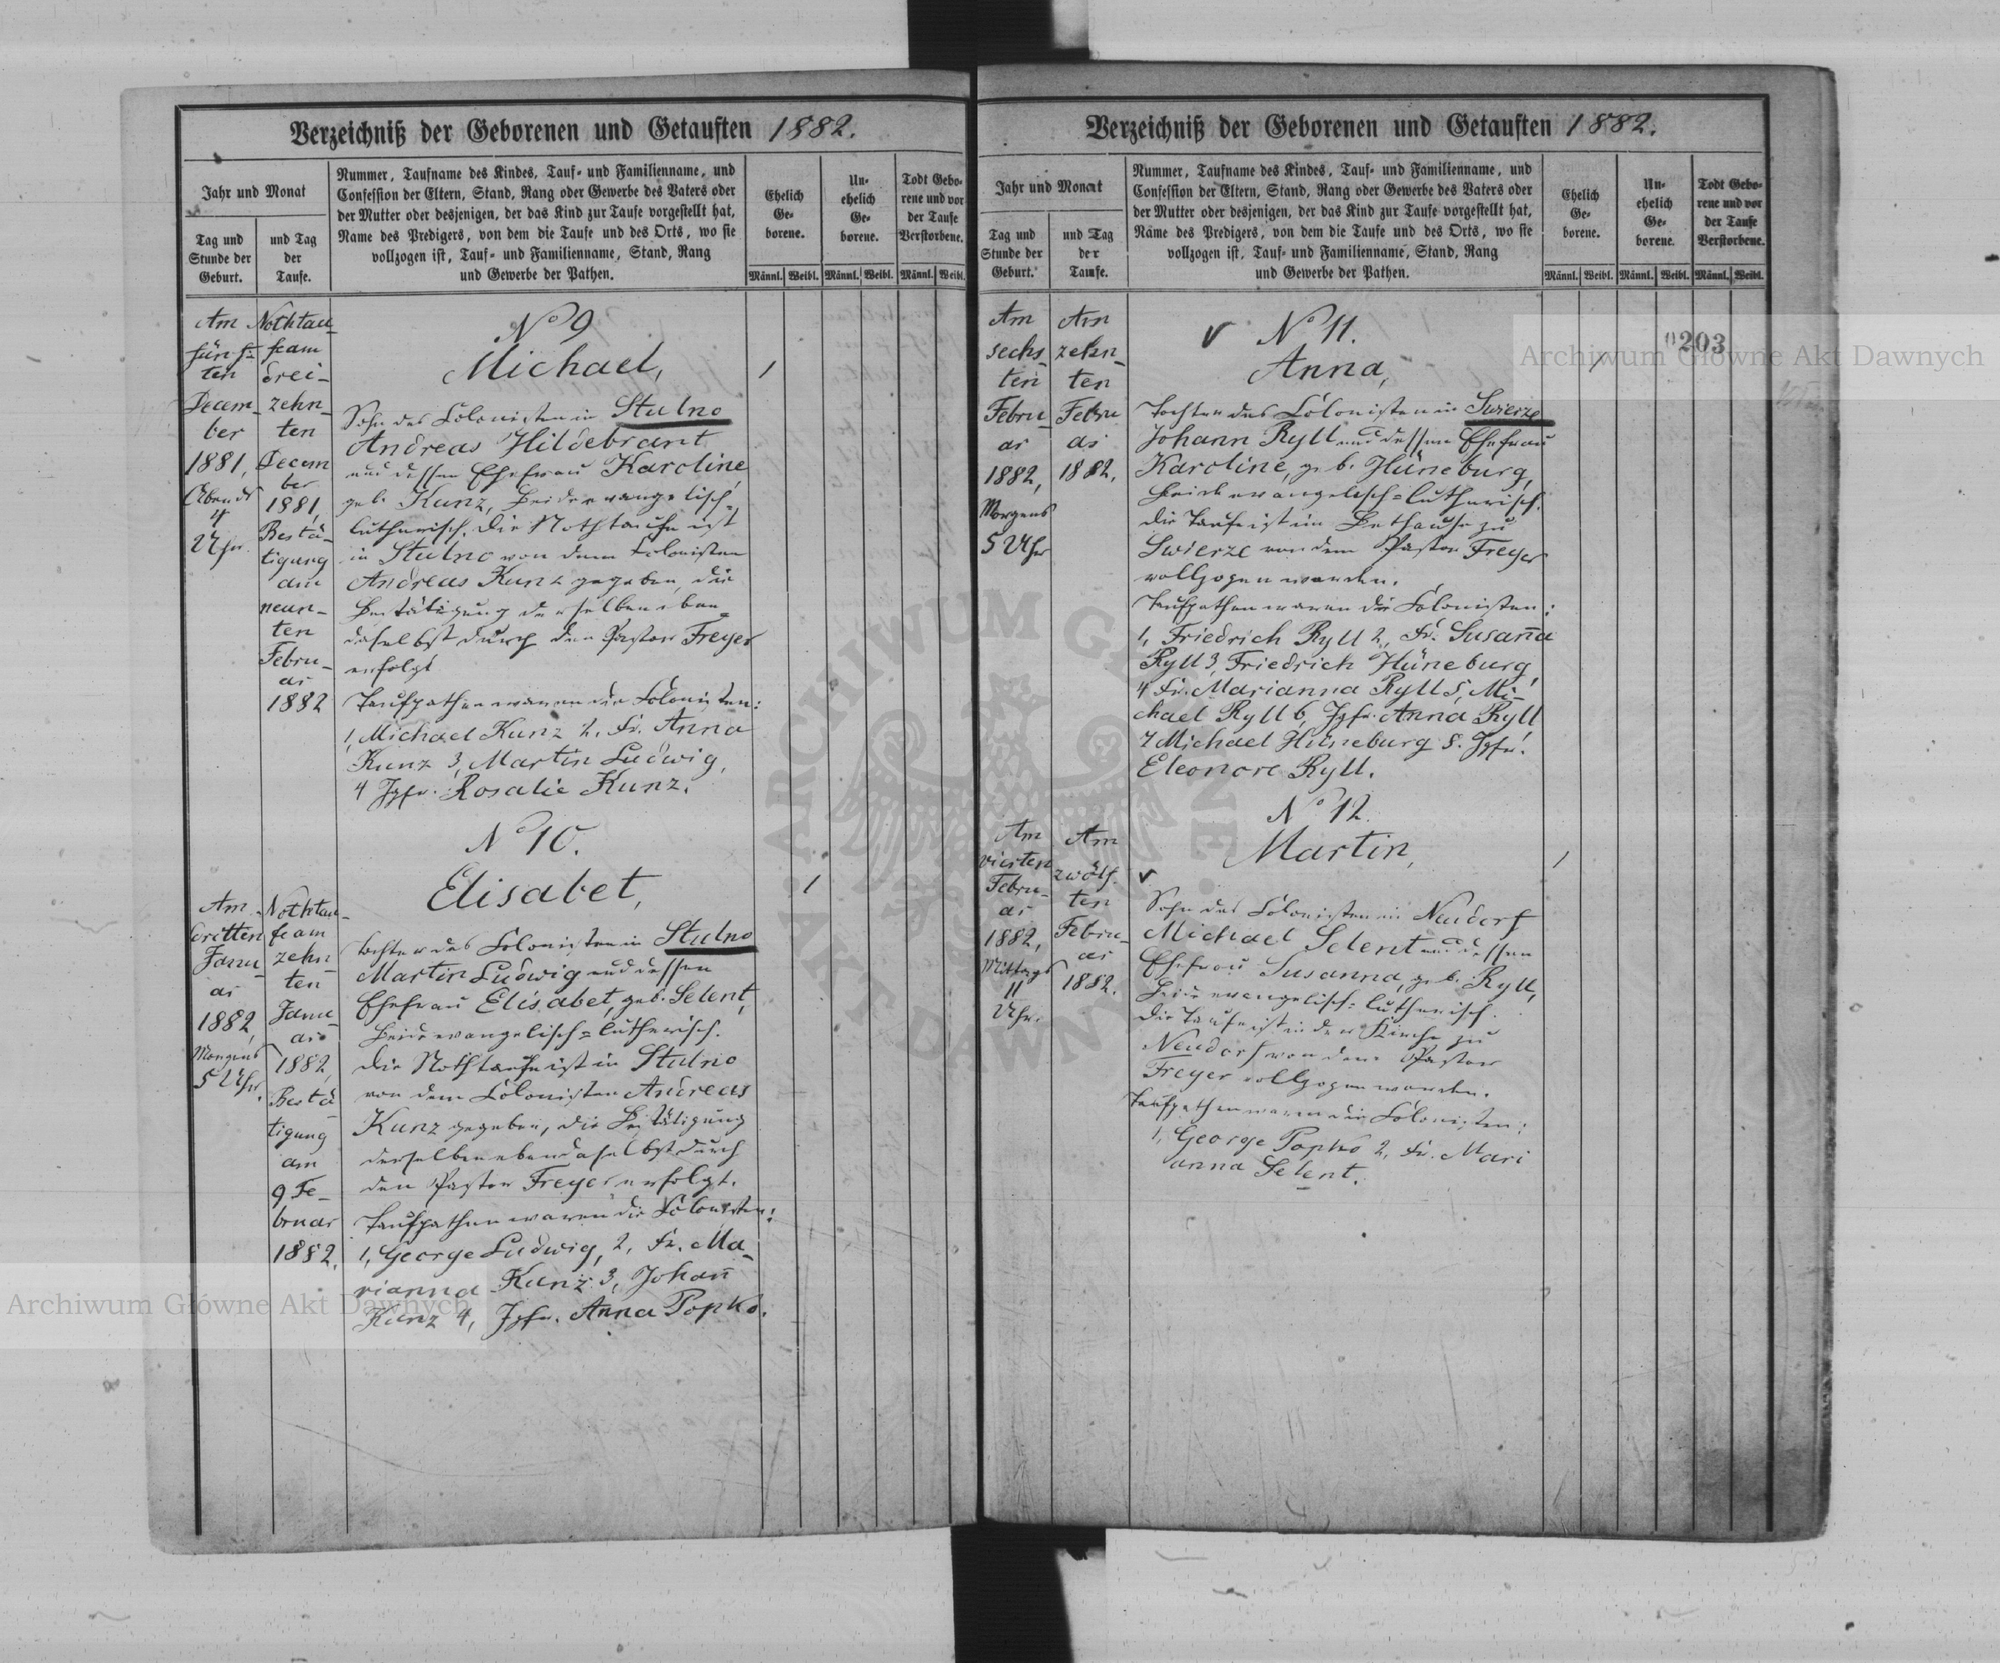 Verzeichniß der Geborenen und Getauften 1882.
Jahr und Monat
Tag und
Stunde der
Geburt.
und Tag
der
Taufe.
Nummer, Taufname des Kindes, Tauf- und Familienname, und
Confession der Eltern, Stand, Rang oder Gewerbe des Vaters oder
der Mutter oder desjenigen, der das Kind zur Taufe vorgestellt hat,
Name des Predigers, von dem die Taufe und des Orts, wo sie
vollzogen ist, Tauf- und Familienname, Stand, Rang
und Gewerbe der Pathen.
Ehelich
Ge-
borene.
Un-
ehelich
Ge-
borene.
Todt Gebo-
rene und vor
der Taufe
Verstorbene.
Männl. Weibl. Männl. Weibl. Männl. Weibl.
Am
fünf-
ten
Decem-
ber
1881,
Abends
4
Uhr.
Nothtau-
fe am
drei-
zehn-
ten
Decem
ber
1881,
Bestä-
tigung
am
neun-
ten
Febru-
ar
1882
No 9
Michael,
1
Sohn des Colonisten in Stulno
Andreas Hildebrant
und dessen Ehefrau Karoline,
geb. Kunz, Beide evangelisch-
lutherisch. Die Nothtaufe ist
in Stulno von dem Colonisten
Andreas Kunz gegeben, die
Bestätigung derselben eben-
daselbst durch den Pastor Freyer
erfolgt
Taufpathen waren die Colonisten:
1, Michael Kunz 2. Fr. Anna
Kunz 3, Martin Ludwig,
4 Jgfr. Rosalie Kunz.
Am
dritten
Janu-
ar
1882,
Morgens
5 Uhr.
Nothtau-
fe am
zehn-
ten
Janu-
ar
1882,
Bestä
tigung
am
9 Fe-
bruar
1882.
No 10.
Elisabet,
1
Tochter des Colonisten in Stulno
Martin Ludwig und dessen
Ehefrau Elisabet, geb. Selent,
Beide evangelisch-lutherisch.
Die Nothtaufe ist in Stulno
von dem Colonisten Andreas
Kunz gegeben, die Bestätigung
derselben ebendaselbst durch
den Pastor Freyer erfolgt.
Taufpathen waren die Colonisten:
1, George Ludwig, 2, Fr. Ma-
rianna Kunz 3, Johan̄
Kunz 4, Jgfr. Anna Popko.
Verzeichniß der Geborenen und Getauften 1882.
Jahr und Monat
Tag und
Stunde der
Geburt.
und Tag
der
Taufe.
Nummer, Taufname des Kindes, Tauf- und Familienname, und
Confession der Eltern, Stand, Rang oder Gewerbe des Vaters oder
der Mutter oder desjenigen, der das Kind zur Taufe vorgestellt hat,
Name des Predigers, von dem die Taufe und des Orts, wo sie
vollzogen ist, Tauf- und Familienname, Stand, Rang
und Gewerbe der Pathen.
Ehelich
Ge-
borene.
Un-
ehelich
Ge-
borene.
Todt Gebo-
rene und vor
der Taufe
Verstorbene.
Männl. Weibl. Männl. Weibl. Männl. Weibl.
0203
Am
sechs-
ten
Febru-
ar
1882,
Morgens
5 Uhr
Am
zehn-
ten
Febru
ar
1882.
No 11.
Anna,
1
Tochter des Colonisten in Swierze
Johann Ryll und dessen Ehefrau
Karoline, geb. Hüneburg,
Beide evangelisch-lutherisch.
Die Taufe ist im Bethause zu
Swierze von dem Pastor Freyer
vollzogen worden.
Taufpathen waren die Colonisten:
1, Friedrich Ryll 2, Fr. Susan̄a
Ryll 3, Friedrich Hüneburg,
4 Fr. Marianna Ryll 5, Mi-
chael Ryll 6, Jgfr. Anna Ryll
7 Michael Hüneburg 8. Jgfr.
Eleonore Ryll.
Am
vierten
Febru-
ar
1882,
Mittags
11
Uhr.
Am
zwölf-
ten
Febru-
ar
1882.
No 12.
Martin,
1
Sohn des Colonisten in Neudorf
Michael Selent und dessen
Ehefrau Susanna, geb. Ryll,
Beide evangelisch-lutherisch.
Die Taufe ist in der Kirche zu
Neudorf von dem Pastor
Freyer vollzogen worden.
Taufpathen waren die Colonisten:
1, George Popko 2, Fr. Mari
anna Selent.
Archiwum Główne Akt Dawnych
Archiwum Główne Akt Dawnych
ARCHIWUM GŁÓWNE
AKT DAWNYCH